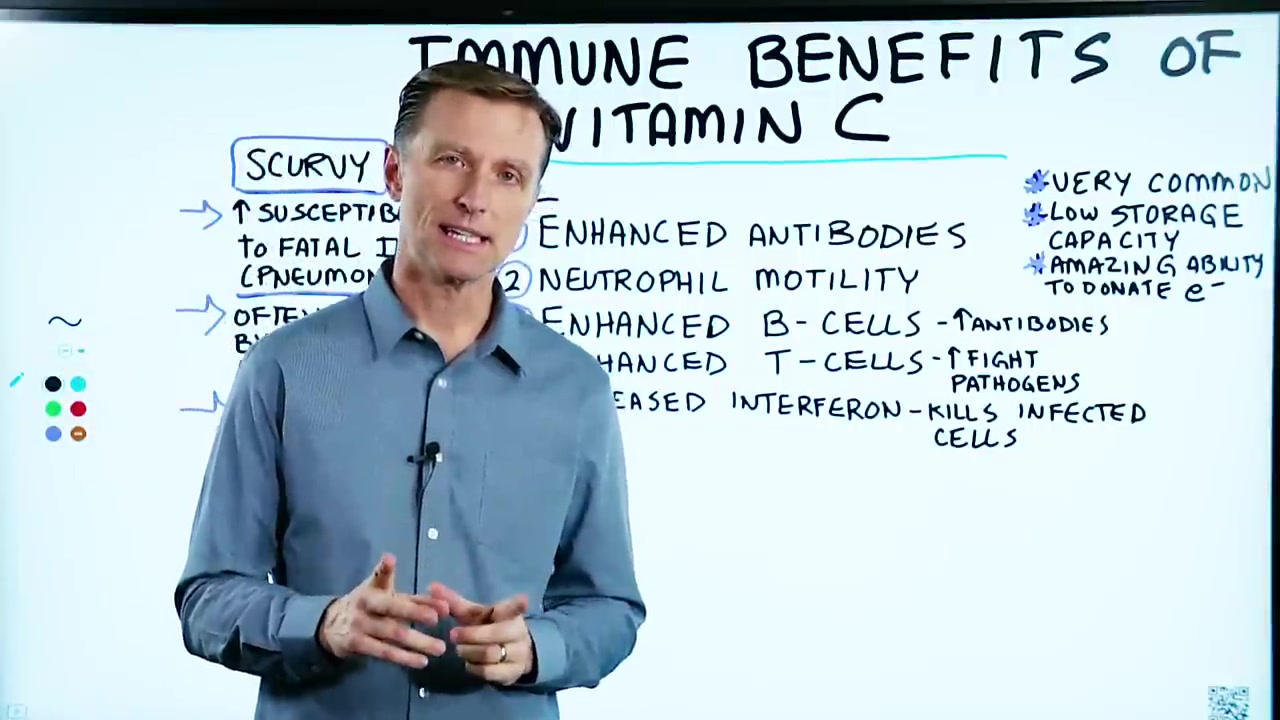 IMMUNE BENEFITS OF
VITAMIN C
SCURVY
↑ SUSCEPTIB
to FATAL I
(PNEUMON
OFTE
ENHANCED ANTIBODIES
2 NEUTROPHIL MOTILITY
ENHANCED B-CELLS - ↑ ANTIBODIES
HANCED T-CELLS - ↑ FIGHT
PATHOGENS
EASED INTERFERON - KILLS INFECTED
CELLS
* VERY COMMON
* LOW STORAGE
CAPACITY
* AMAZING ABILITY
TO DONATE e⁻